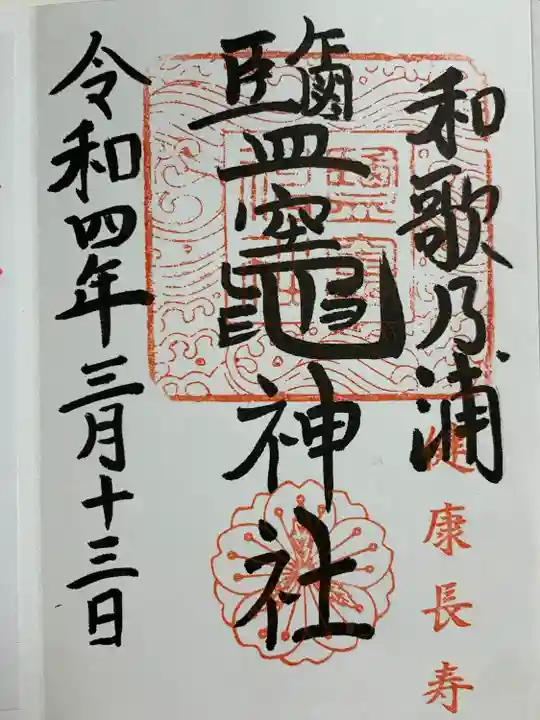 和歌乃浦
健康長寿
鹽竈神社
令和四年三月十三日